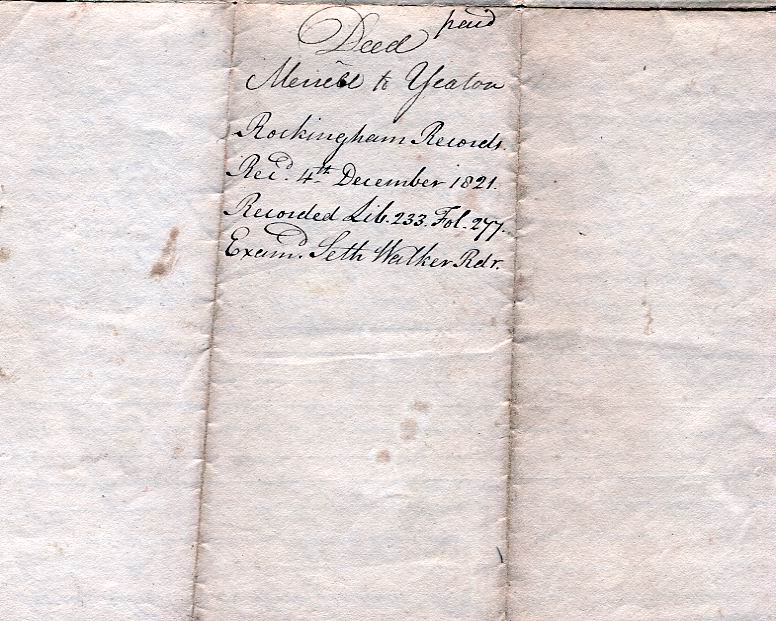 Deed paid
Merrill to Yeaton
Rockingham Records.
Rec.d 4th December 1821.
Recorded Lib. 233. Fol. 277.
Exam.d Seth Walker Rdr.